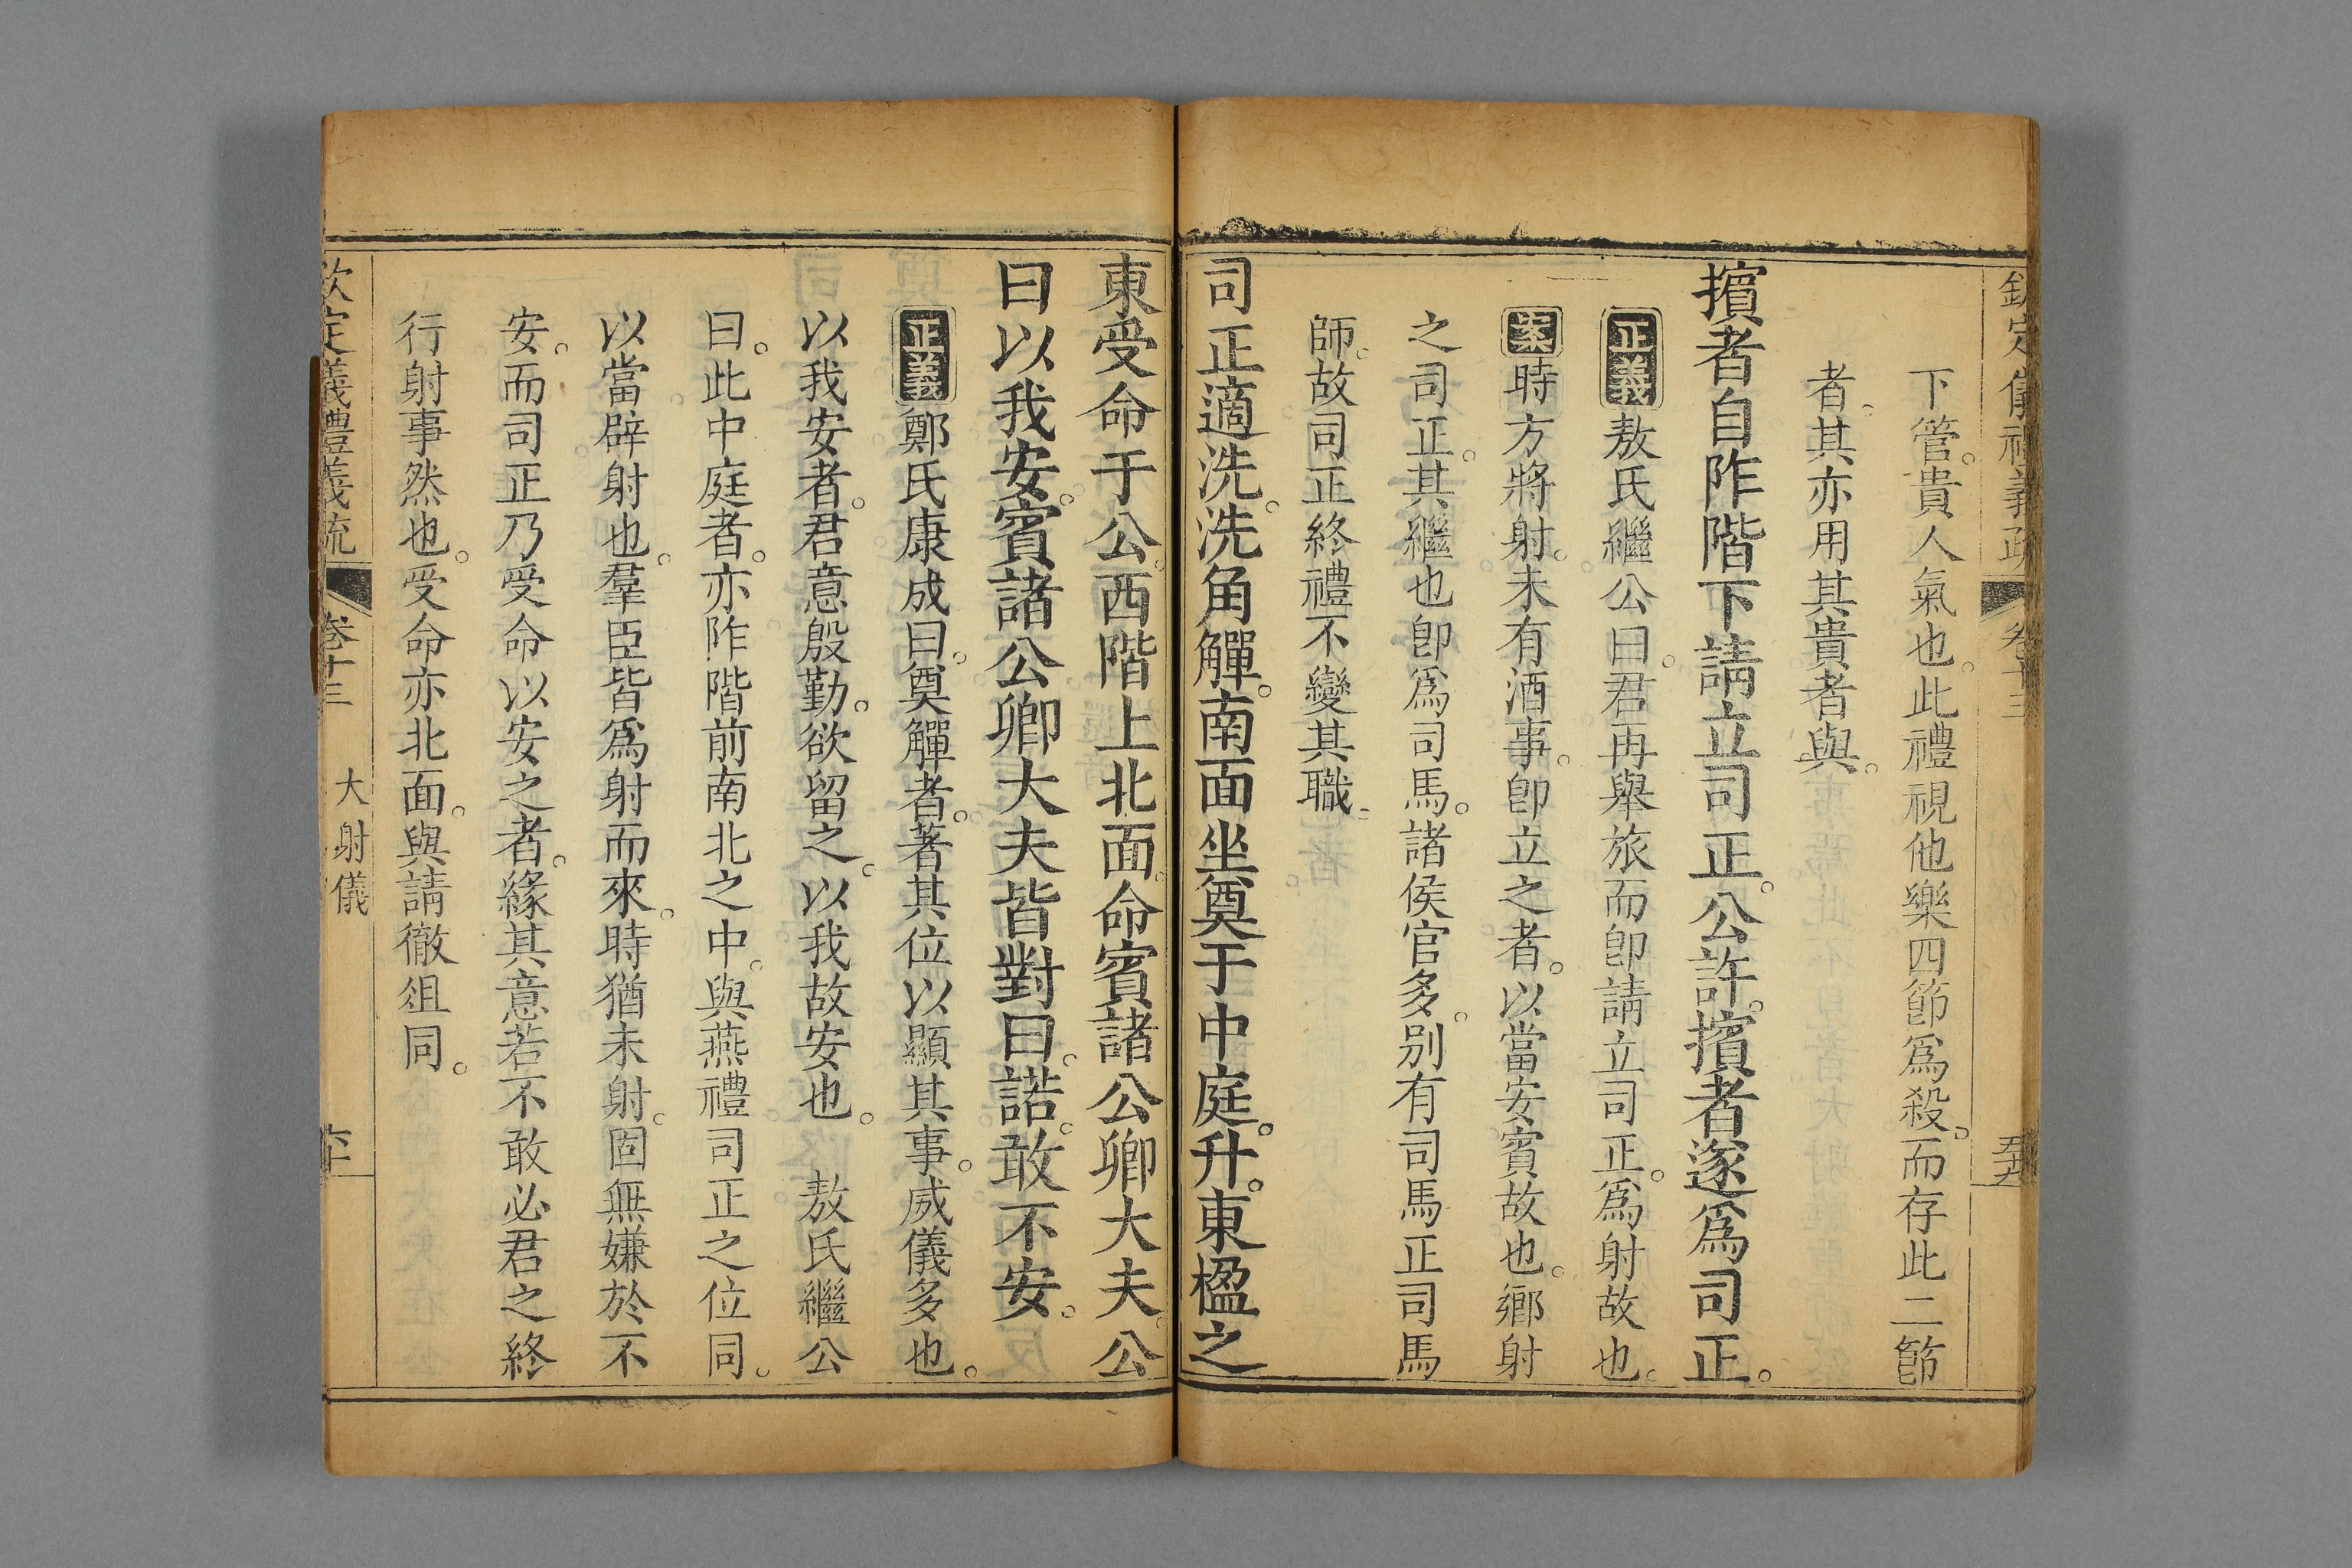 欽定儀禮義疏 卷十三
下管。貴人氣也。此禮視他樂四節爲殺。而存此二節
者。其亦用其貴者與。
擯者自阼階下請立司正。公許。擯者遂爲司正。
正義敖氏繼公曰。君再舉旅而卽請立司正。爲射故也。
案時方將射。未有酒事。卽立之者。以當安賓故也。鄉射
之司正。其繼也卽爲司馬。諸侯官多。别有司馬正司馬
師。故司正終禮不變其職。
司正適洗。洗角觶。南面坐奠于中庭。升。東楹之
東受命于公。西階上北面。命賓諸公卿大夫。公
曰以我安。賓諸公卿大夫皆對曰。諾。敢不安。
正義鄭氏康成曰。奠觶者。著其位以顯其事。威儀多也。
以我安者。君意殷勤。欲留之。以我故安也。 敖氏繼公
曰。此中庭者。亦阼階前南北之中。與燕禮司正之位同。
以當辟射也。羣臣皆爲射而來。時猶未射。固無嫌於不
安。而司正乃受命以安之者。緣其意若不敢必君之終
行射事然也。受命亦北面。與請徹俎同。
欽定儀禮義疏 卷十三 大射儀